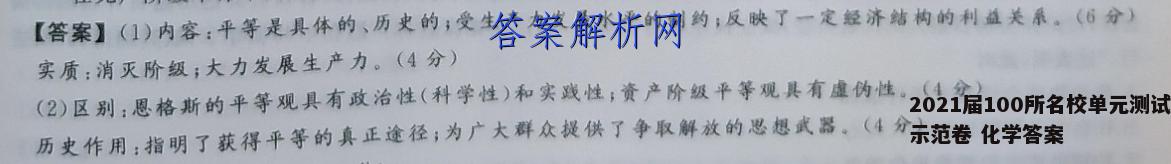 【答案】(1)内容:平等是具体的、历史的;受生 水 的 约;反映了一定经济结构的利益关系。(6分)
答案解析网
实质:消灭阶级;大力发展生产力。(4分)
(2)区别:恩格斯的平等观具有政治性(科学性)和实践性;资产阶级平等观具有虚伪性。(4分)
2021届100所名校单元测试
历史作用:指明了获得平等的真正途径;为广大群众提供了争取解放的思想武器。(4分
示范卷 化学答案